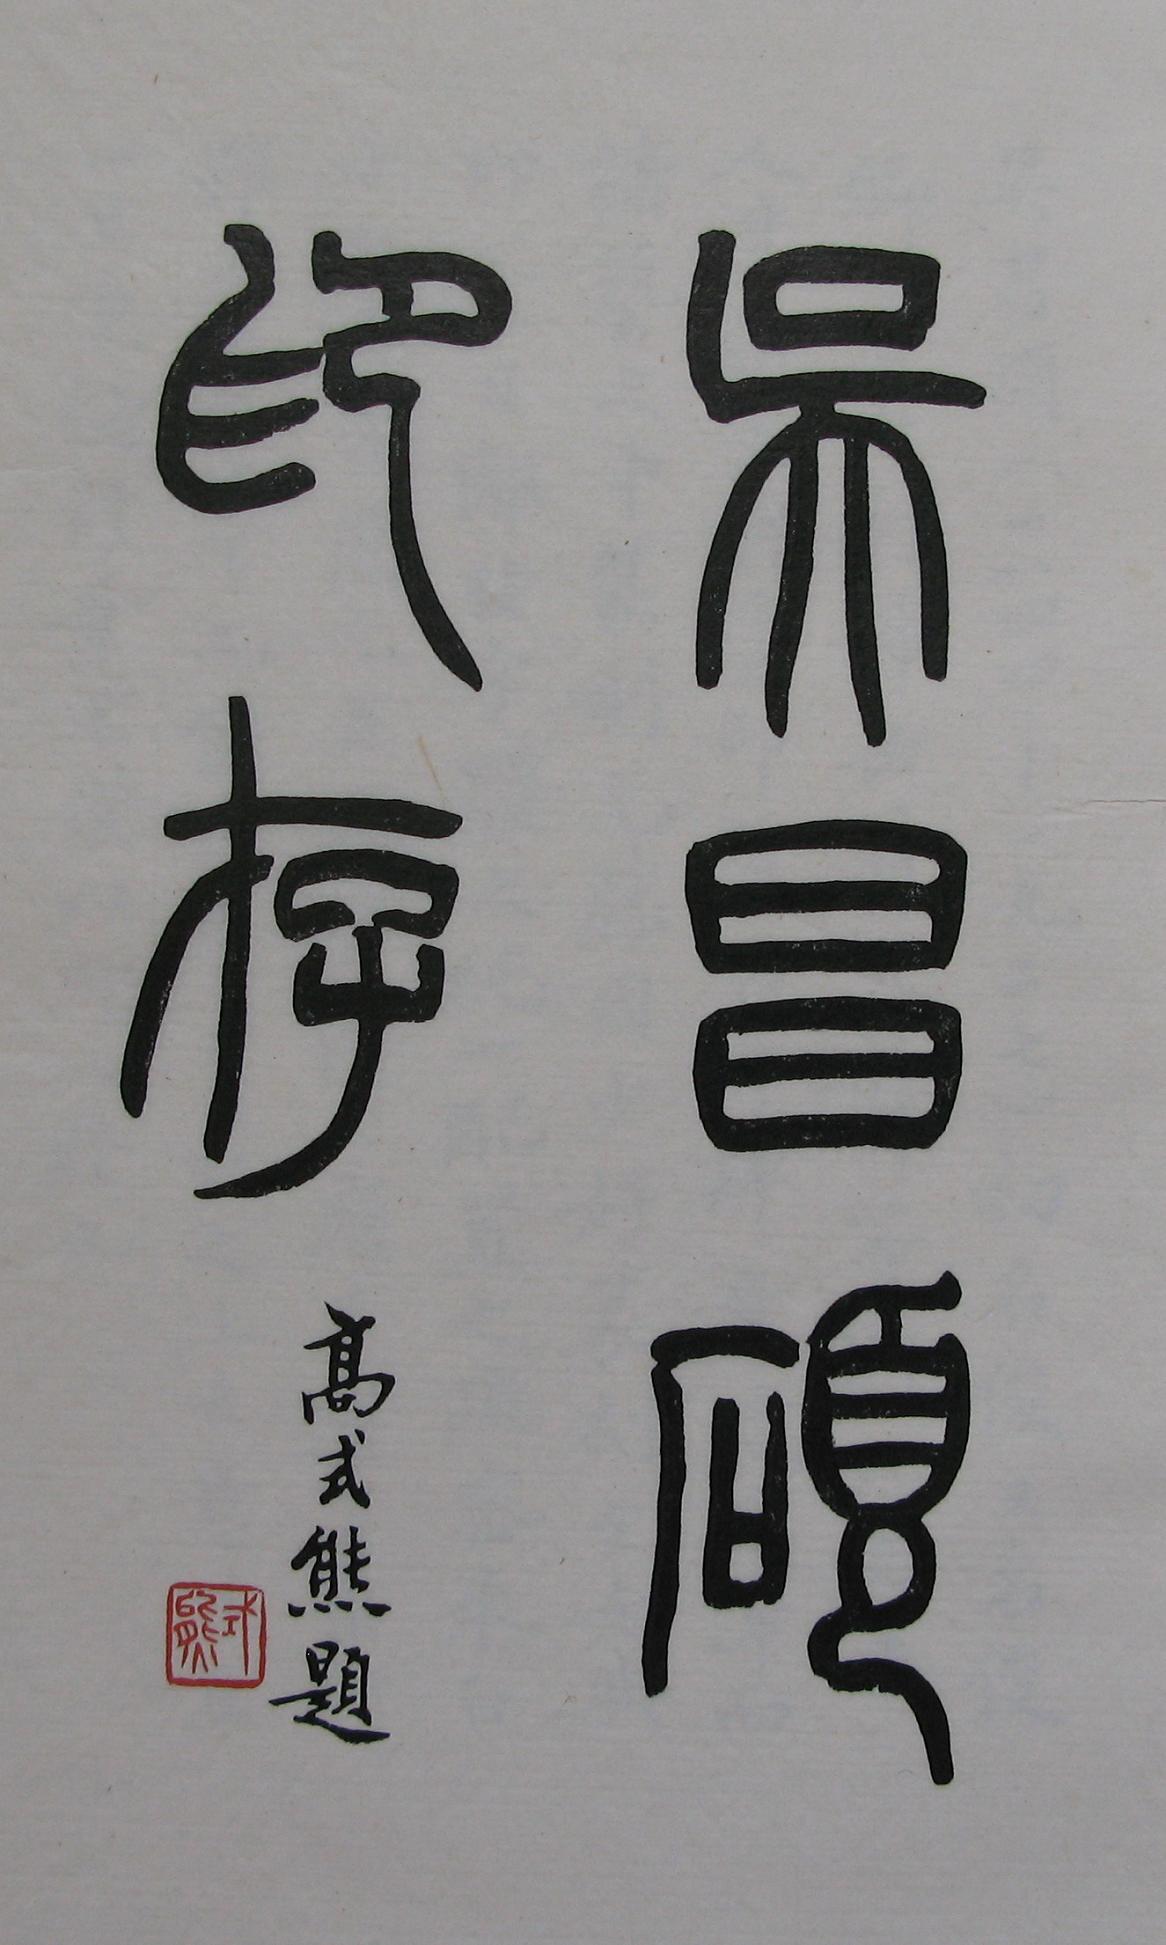 吳昌碩
印存
高式熊題
式熊